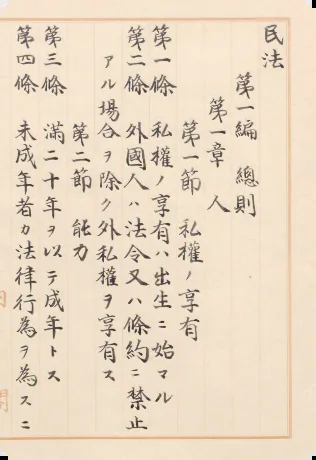 民法
第一編　總則
第一章　人
第一節　私權ノ享有
第一條　私權ノ享有ハ出生ニ始マル
第二條　外國人ハ法令又ハ條約ニ禁止
アル場合ヲ除ク外私權ヲ享有ス
第二節　能力
第三條　滿二十年ヲ以テ成年トス
第四條　未成年者カ法律行為ヲ為スニ